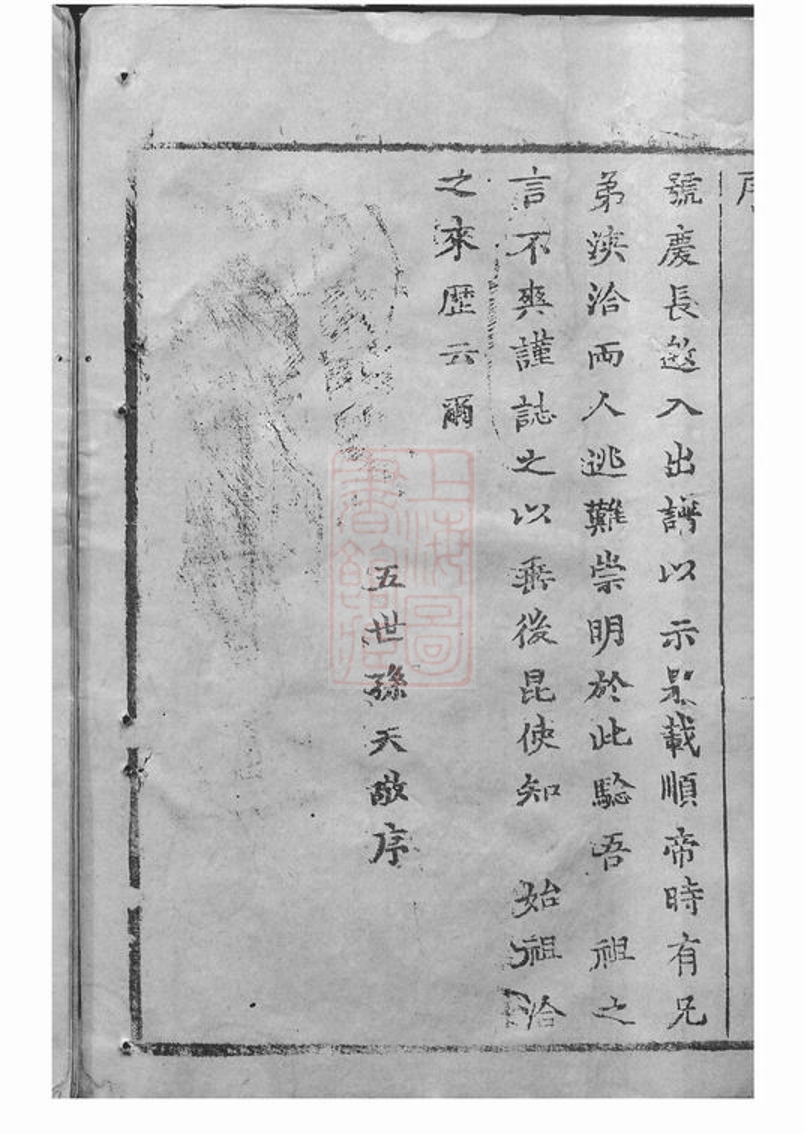 號慶長邀入出譜以示杲載順帝時有兄
弟浹洽兩人逃難崇明於此騐吾祖之
言不爽謹誌之以垂後昆使知 始祖洽
之來歷云爾
五世孫天敬序
上海圖書館藏